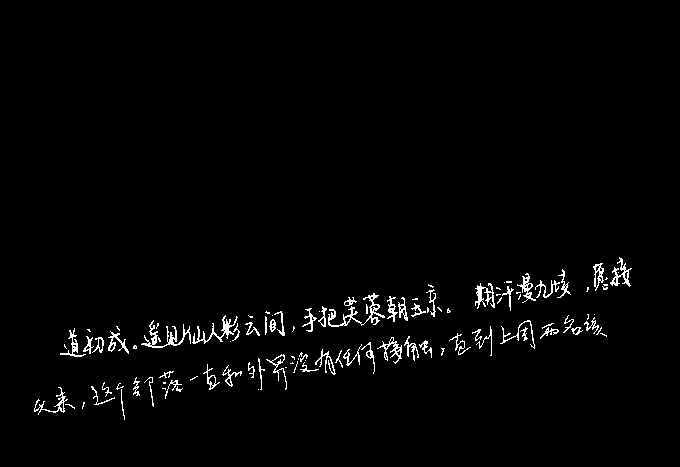 道初成。遥见仙人彩云间，手把芙蓉朝玉京。 期汗漫九垓，愿接
以来，这个部落一直和外界没有任何接触，直到上周两名该